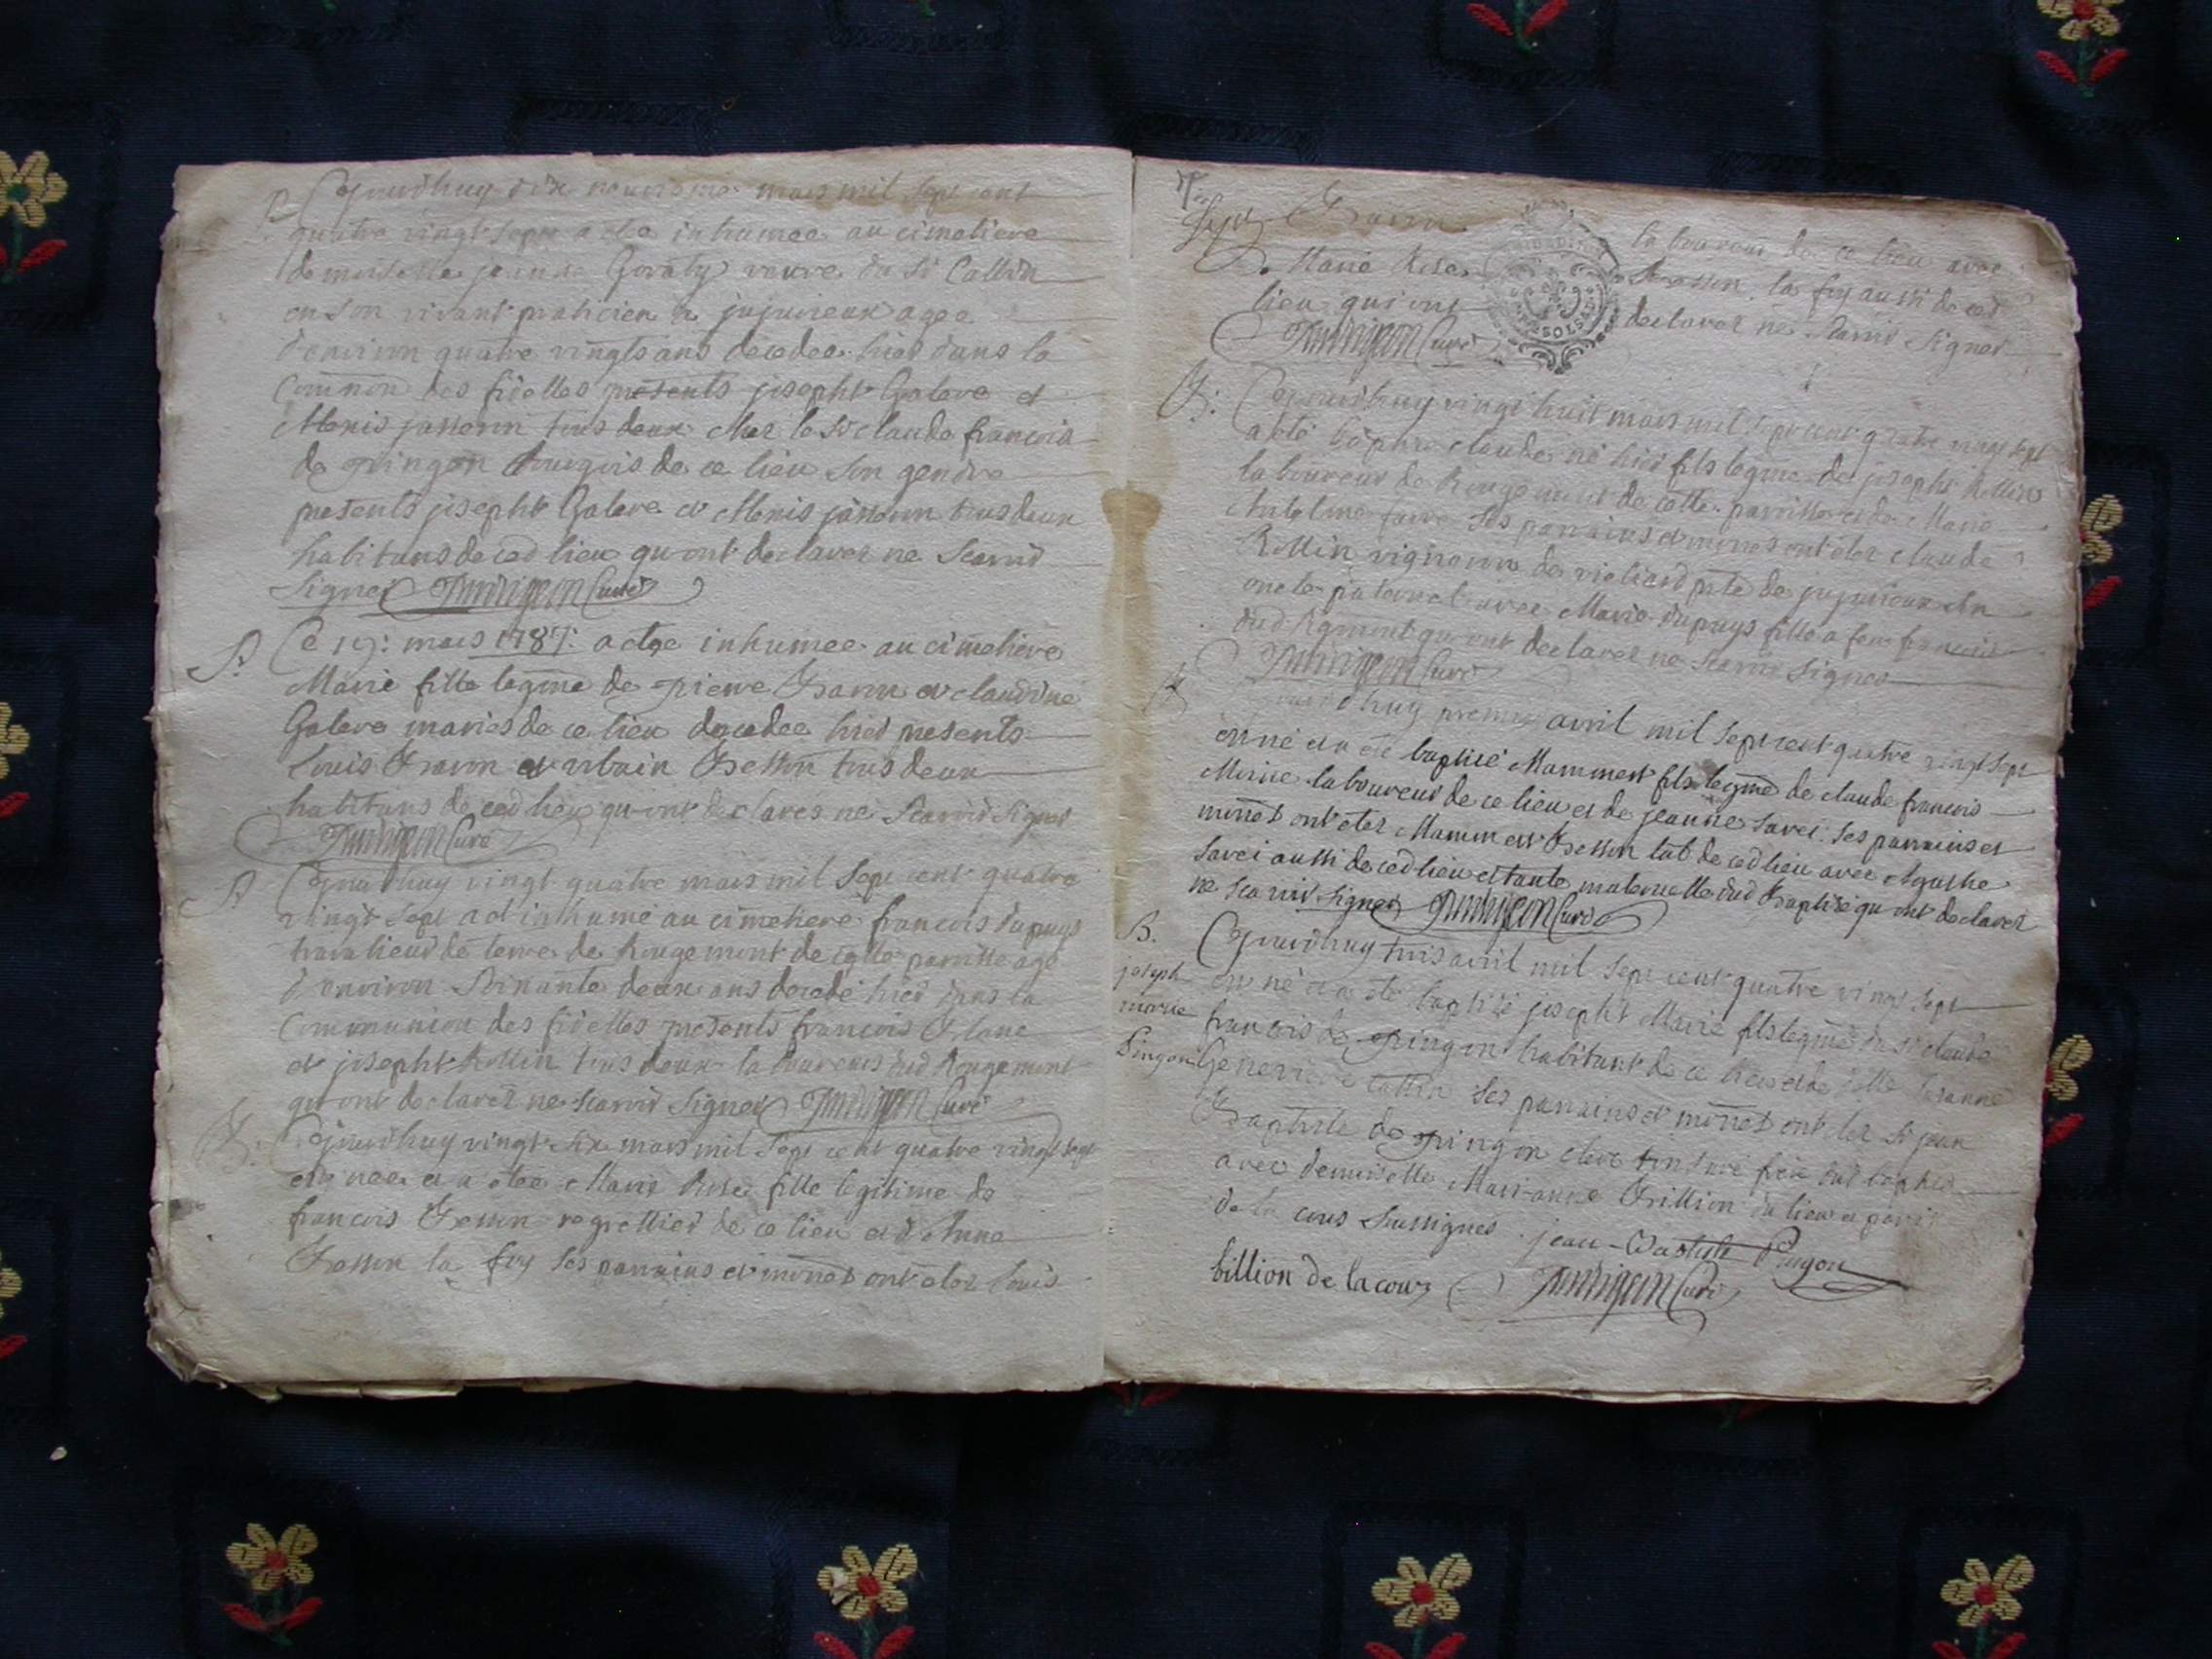 Cejourdhuy dix neuvieme mars mil sept cent
quatre vingt sept a ete inhumee au cimetiere
demoiselle jeanne Goraty veuve du Sr Cattin
en son vivant praticien a jujurieux agee
d'environ quatre vingts ans decedee hier dans la
Comunion des fidelles presents joseph Galere et
Alexis jasseron tous deux chez le Sr claude francois
de pingon bourgois de ce lieu son gendre
presents joseph Galere et Alexis jasseron tous deux
habitans de ced lieu qu ont declarer ne Scavoir
Signer Curé
S. Ce 19: mars 1787: a etée inhumee au cimetiere
Marie fille legme de pierre Baron et claudine
Galere maries de ce lieu decedee hier presents
Louis Baron et urbain Besson tous deux
habitans de ced lieu qu ont declarer ne Scavoir Signer
Curé
S. Cejourdhuy vingt quatre mars mil Sept cent quatre
vingt Sept a ete inhumé au cimetiere francois dupuys
travalieur de terre de Rougemont de cette parroisse age
d'environ Soixante deux ans decedé hier dans la
Communion des fidelles presents francois
et joseph Rollin tous deux laboureurs dud Rougemont
qu ont declarer ne Scavoir Signer Curé
B: Cejourdhuy vingt Six mars mil Sept cent quatre vingt Sept
est nee et a etee Marie Rose fille legitime de
francois Besson regrollier de ce lieu et d Anne
Besson la foy Ses parrains et mines ont eter Louis
Sept Baron laboureur de ce lieu avec
Marie Rose Besson la foy aussi de ced
lieu qui ont declarer ne Scavoir Signer
Curé
B: Cejourdhuy vingt huit mars mil Sept cent quatre vingt Sept
a été claude né hier fils legme de joseph Rollin
laboureur de Rougemont de cette parroisse et de Marie
Anthelme favre Ses parrains et mines ont eter claude
Rollin vigneron de vieliard psse de jujurieux
oncle paternel avec Marie dupuys fille a feu francois
dud Rgmont qu ont declarer ne Scavoir Signer
Curé
jourdhuy premier avril mil Sept cent quatre vingt Sept
est né et a été baptisé Mammert fils legme de claude francois
laboureur de ce lieu et de jeanne Savei Ses parrains et
mines ont eter Mammert Besson lab de ced lieu avec Agathe
Savei aussi de ced lieu et tante maternelle dud Baptisé qu ont declarer
ne Scavoir Signer Curé
B. Cejourdhuy trois avril mil Sept cent quatre vingt Sept
joseph est né et a été baptisé joseph Marie fils legme du Sr claude
marie francois de pingon habitant de ce lieu et de delle Susanne
Pingon Genevieve Cattin Ses parrains et mines ont eter Sr jean
Baptiste de pingon clerc tonsuré frere dud baptisé
avec demoiselle Marianne Billion du lieu
de la cour Soussignes . jean-Baptiste Pingon
billion de la cour Curé